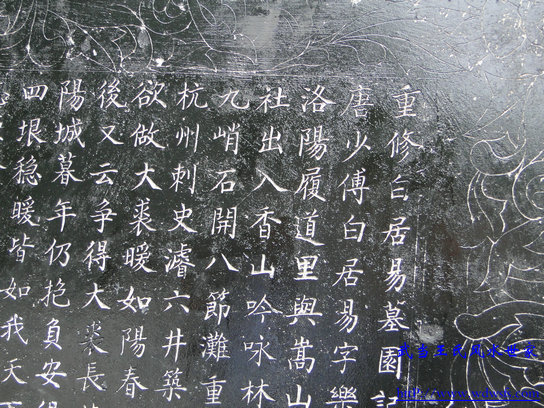 重修白居易墓園記
唐少傅白居易字樂
洛陽履道里與嵩山
社出入香山吟咏林
九峭石開八節灘重
杭州刺史濬六井築
欲做大裘暖如陽春
後又云争得大裘長
陽城暮年仍抱負安得
四垠稳暖皆如我天下
武当王氏风水世家